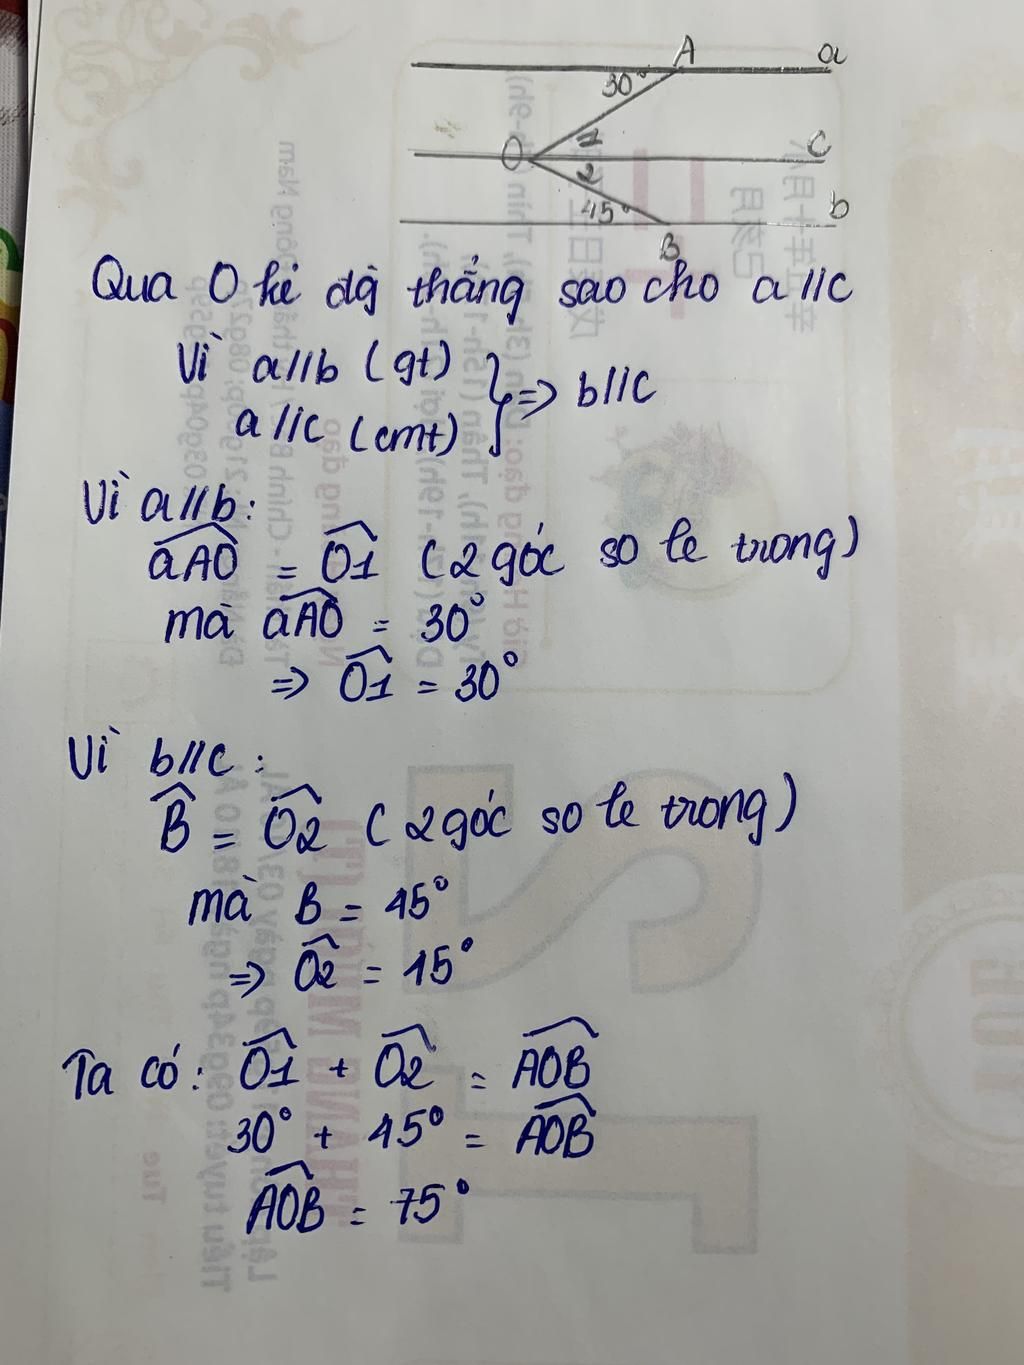 A a
30°
O 1 c
2
45° b
B
Qua O kẻ đg thẳng sao cho a//c
Vì a//b (gt)
a//c (cmt) } => b//c
Vì a//b:
aAO = O1 (2 góc so le trong)
mà aAO = 30°
=> O1 = 30°
Vì b//c:
B = O2 (2 góc so le trong)
mà B = 45°
=> O2 = 45°
Ta có: O1 + O2 = AOB
30° + 45° = AOB
AOB = 75°